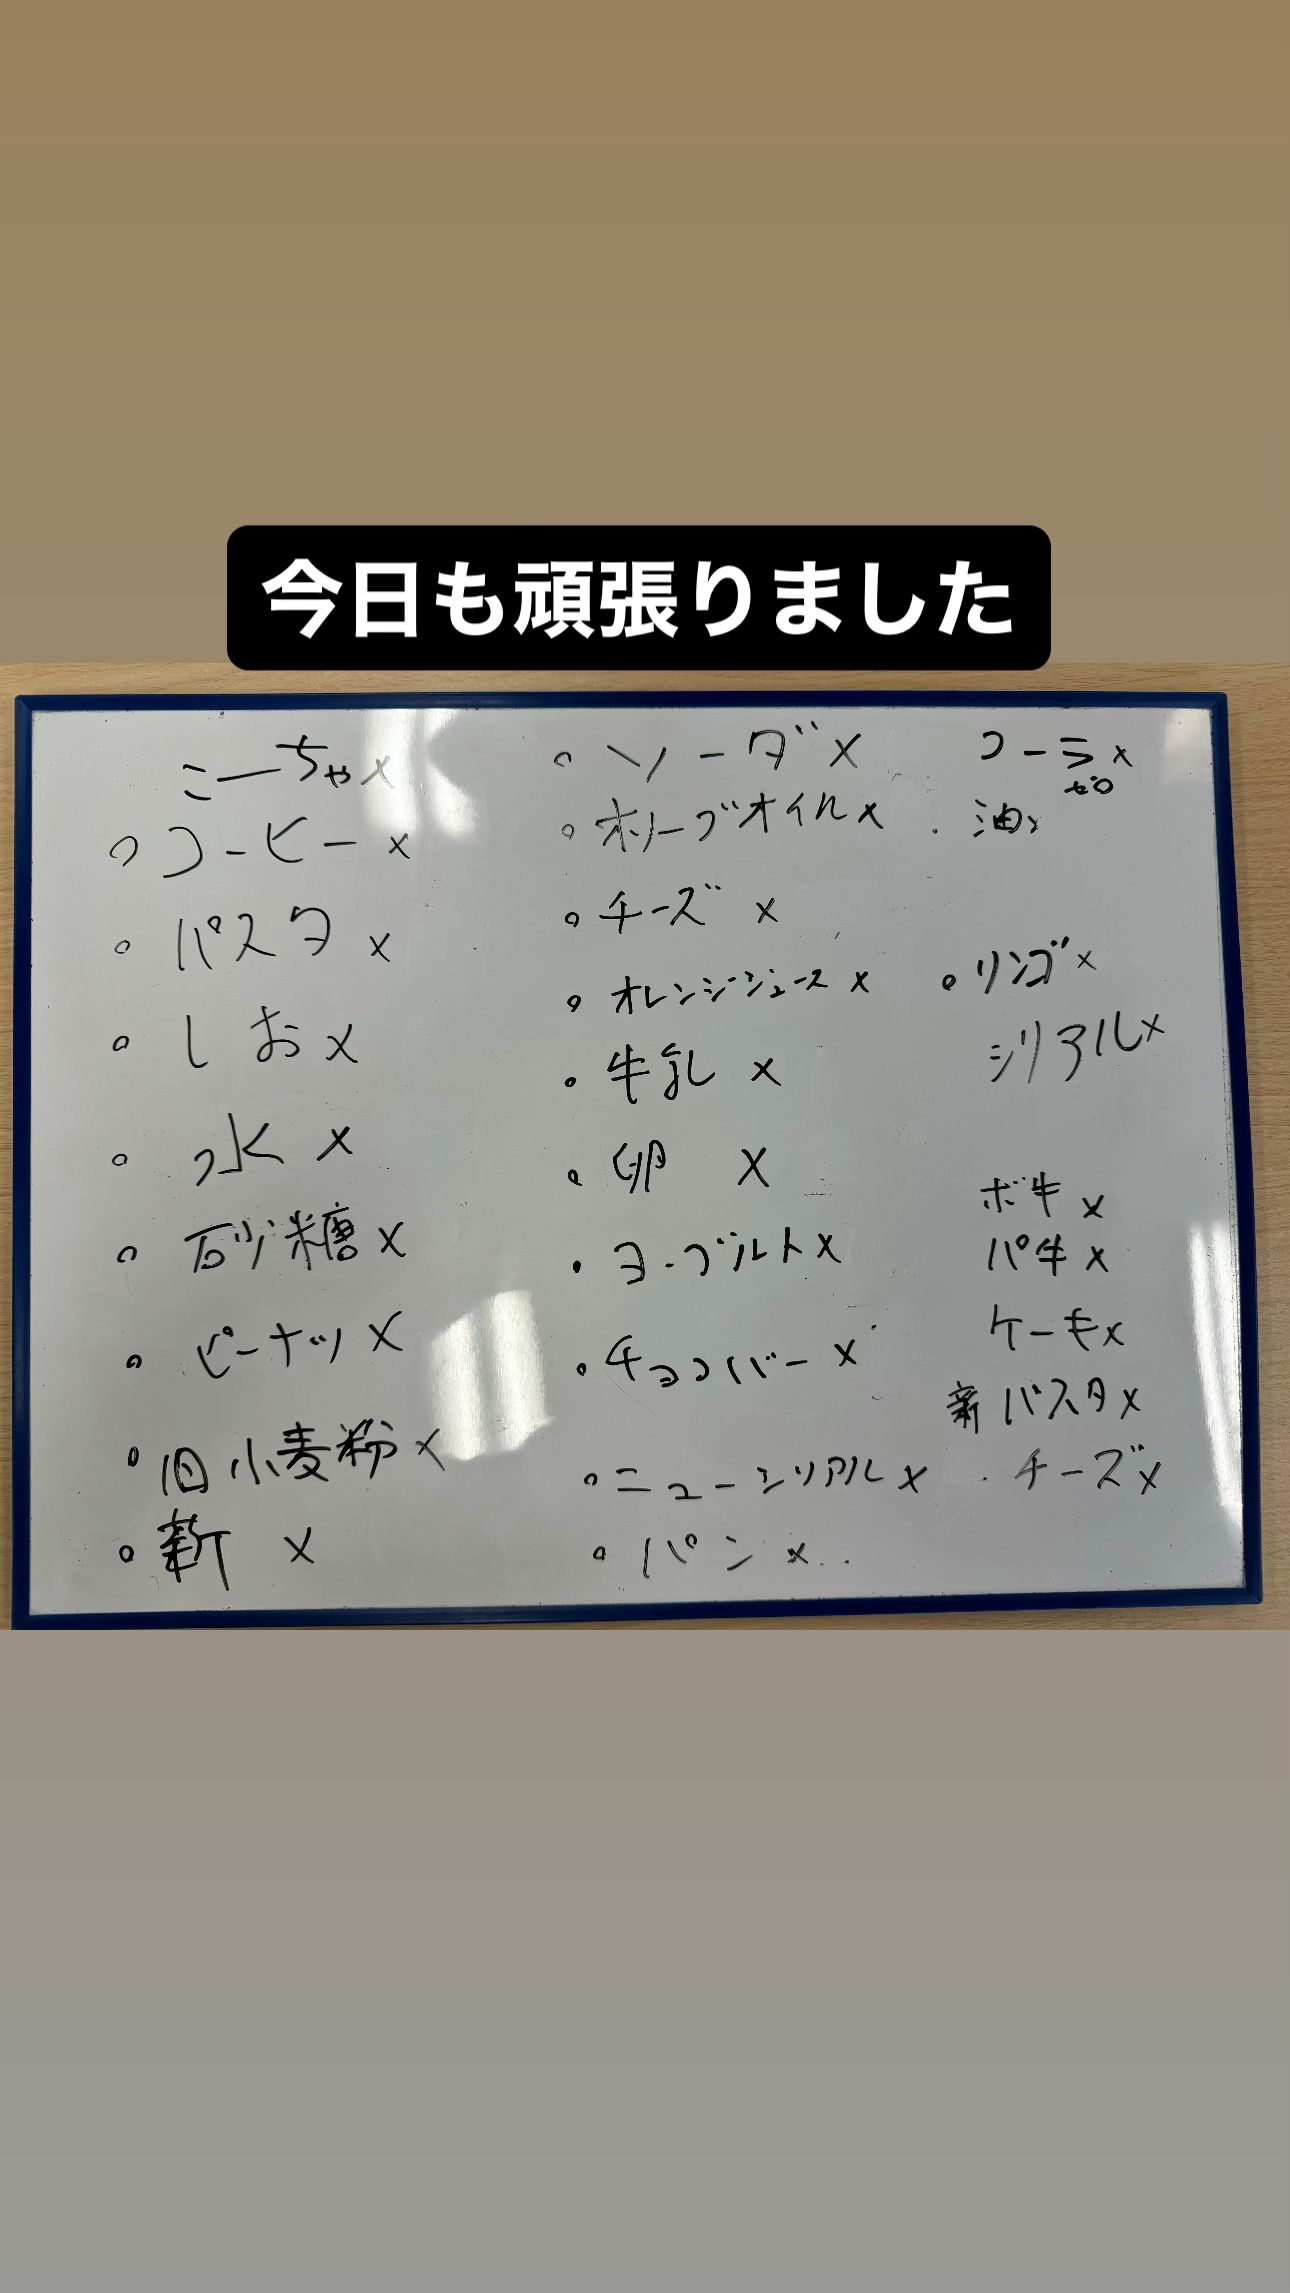 今日も頑張りました
こーちゃ x
○ コーヒー x
○ パスタ x
○ しお x
○ 水 x
○ 砂糖 x
○ ピーナッツ x
○ 旧小麦粉 x
○ 新 x
○ ソーダ x
○ オリーブオイル x
○ チーズ x
○ オレンジジュース x
・ 牛乳 x
・ 卵 x
・ ヨーグルト x
・ チョコバー x
○ ニューシリアル x
○ パン x
コーラ x
ゼロ
・ 油 x
○ リンゴ x
シリアル x
ボ牛 x
パ牛 x
ケーキ x
新パスタ x
・ チーズ x